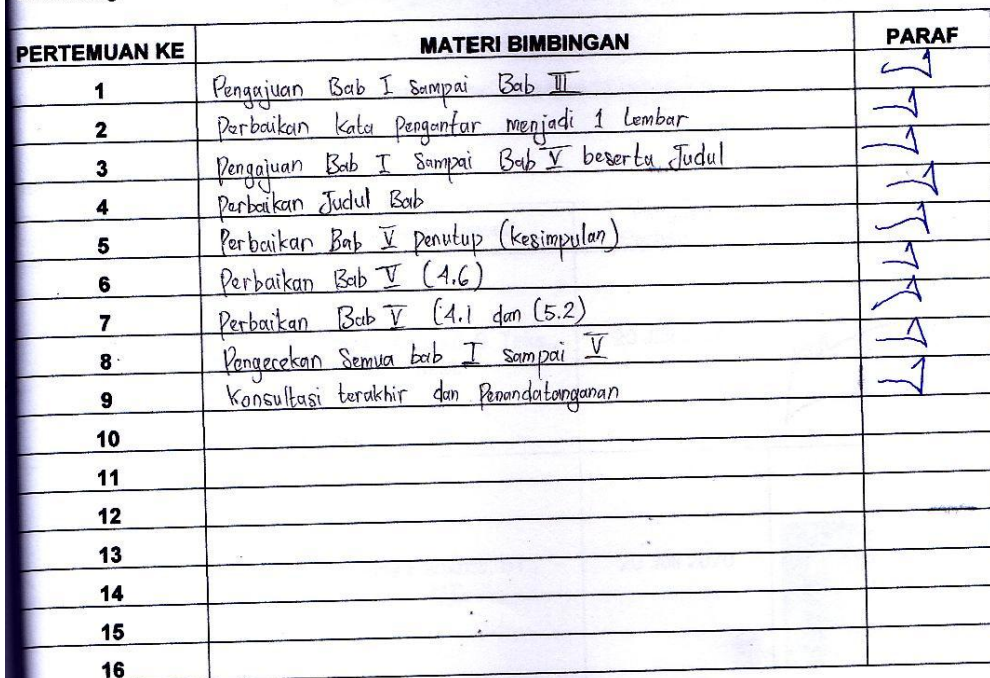 PERTEMUAN KE MATERI BIMBINGAN PARAF
1 Pengajuan Bab I Sampai Bab III
2 Perbaikan Kata Pengantar menjadi 1 Lembar
3 Pengajuan Bab I Sampai Bab V beserta Judul
4 Perbaikan Judul Bab
5 Perbaikan Bab V Penutup (Kesimpulan)
6 Perbaikan Bab V (4.6)
7 Perbaikan Bab V (4.1 dan (5.2)
8 Pengecekan Semua bab I Sampai V
9 Konsultasi terakhir dan Penandatanganan
10
11
12
13
14
15
16